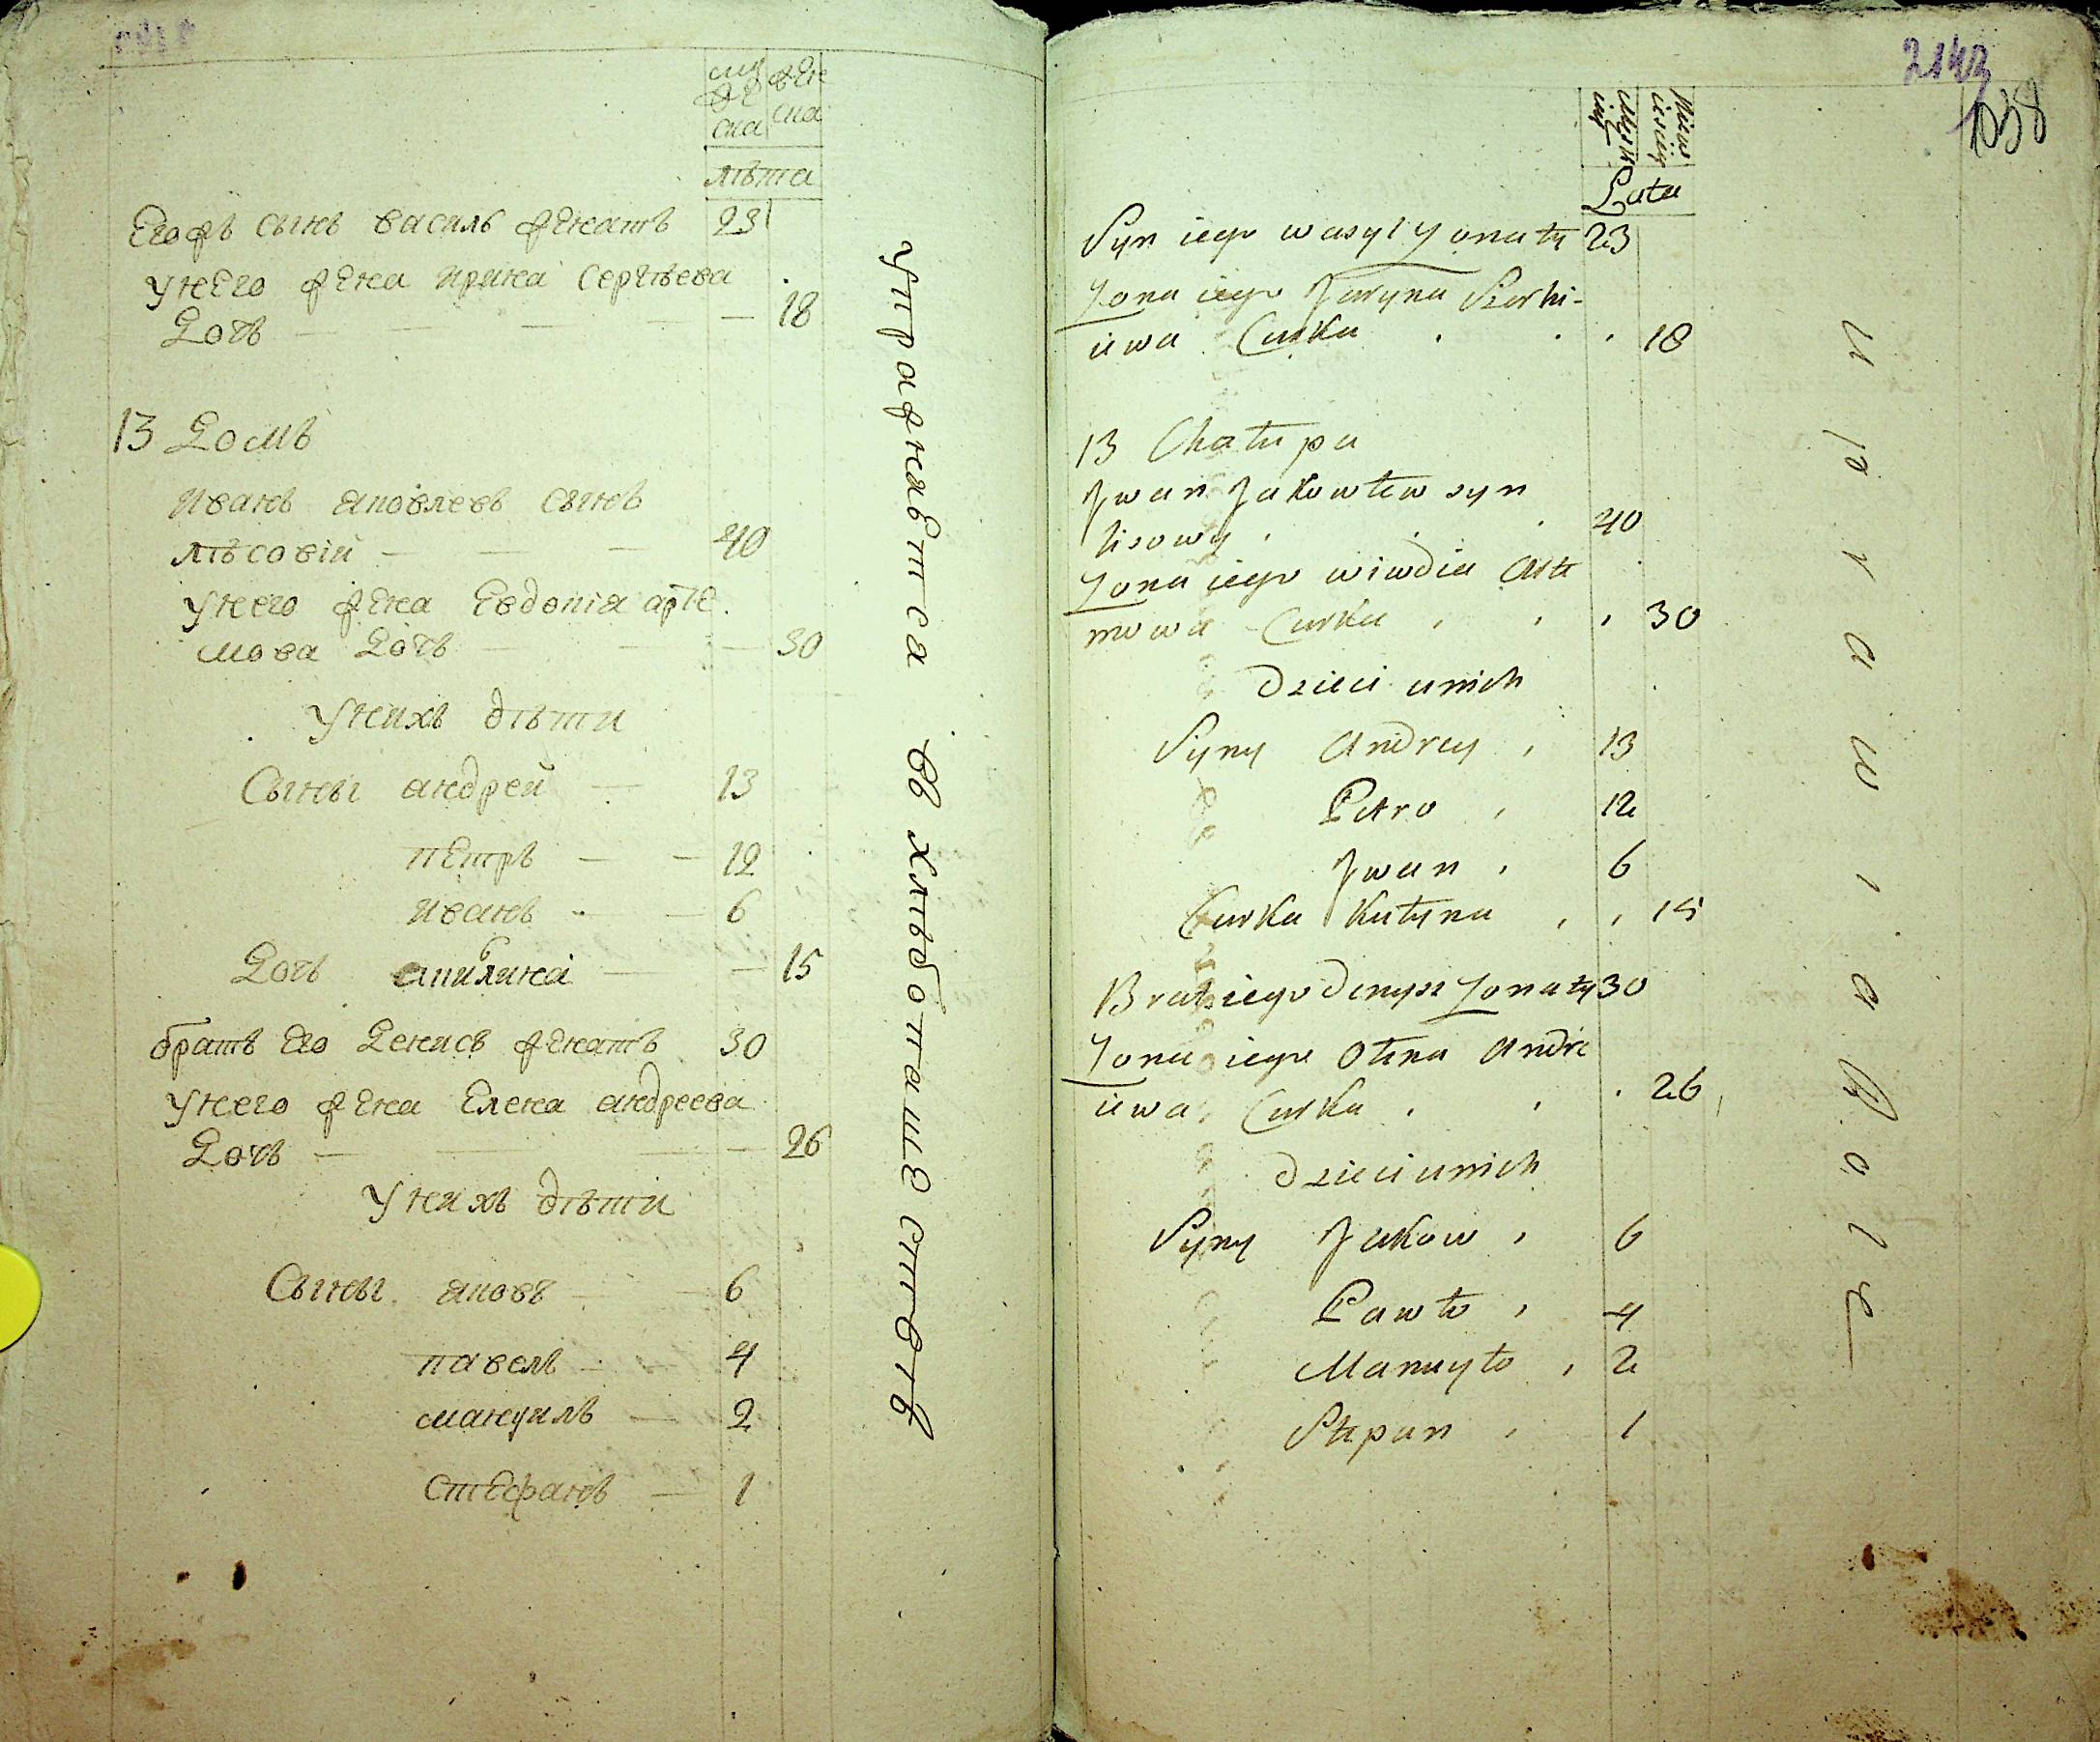 муже
ска
жен
ска
лѣта
Егоръ сынъ василь женатъ 23
Унего жена ирина Сергѣева
Дочь 18
13 Домъ
иванъ яковлевъ сынъ
лѣсовій 40
Унего жена Евдокія арте
мова Дочь 30
Унихъ дѣти
Сыны андрей 13
петръ 12
иванъ 6
Дочь 15
братъ Его Денисъ женатъ 30
Унего жена Елена андреева
Дочь 26
Унихъ дѣти
Сыны яковъ 6
павелъ 4
мануилъ 2
Стефанъ 1
упражняются въ хлѣбопашествѣ
2143
1038
Lata
Syn iego wasyl Żonaty 23
Żona iego Jaryna Szerhi-
iewa Curka 18
13 Chałupa
Jwan Jakowlew syn
lisowy 40
Żona iego wiwdia Arte
mowa Curka 30
Dzieci unich
Syny Andrey 13
Petro 12
Jwan 6
Curka Katyna 15
Brat iego Denys Żonaty 30
Żona iego Olena Andre
iewa Curka 26
Dzieci unich
Syny Jakow 6
Pawło 4
Manuyło 2
Stepan 1